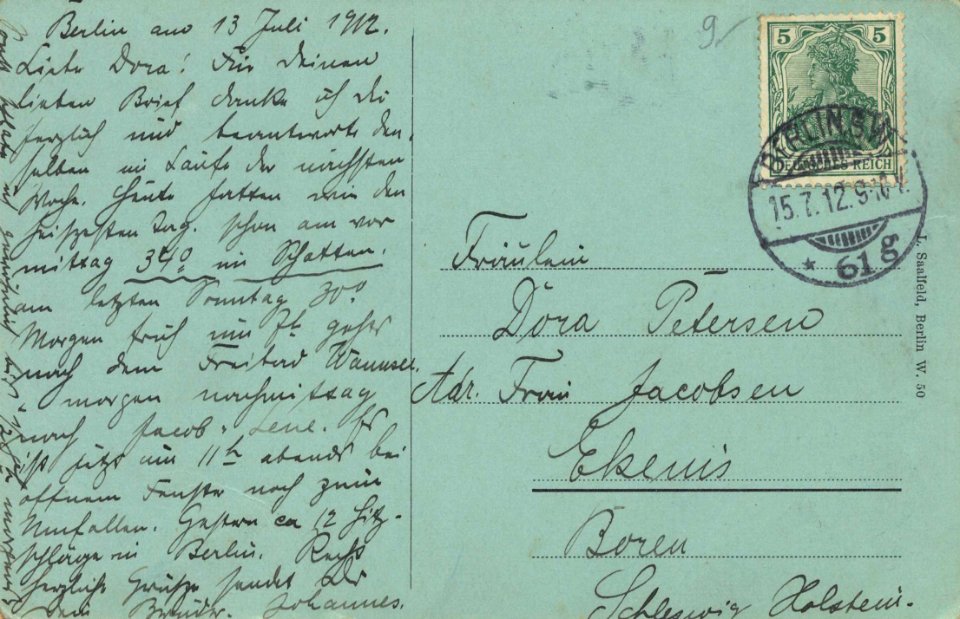 Berlin am 13 Juli 1912.
Liebe Dora! Für deinen
lieben Brief danke ich dir
herzlich und beantworte den-
selben im Laufe der nächsten
Woche. Heute hatten wir den
heiszesten Tag. schon am vor
mittag 34° im Schatten.
am letzten Sonntag 30°.
Morgen früh um 7h gehts
nach dem Freibad Wannsee.
morgen nachmittag
nach Jacob u Lene. Es
ist jetzt um 11h abends bei
offnem Fenster noch zum
Umfallen. Gestern ca 12 Hitz-
schläge in Berlin. Recht
herzliche Grüsze sendet dir
dein Bruder. Johannes.
9
5
DEUTSCHES REICH
BERLIN SW
15.7.12.9-10V.
* 61g
Fräulein
Dora Petersen
Adr. Frau Jacobsen
Ekenis
Boren
Schleswig Holstein.
L. Saalfeld, Berlin W. 50